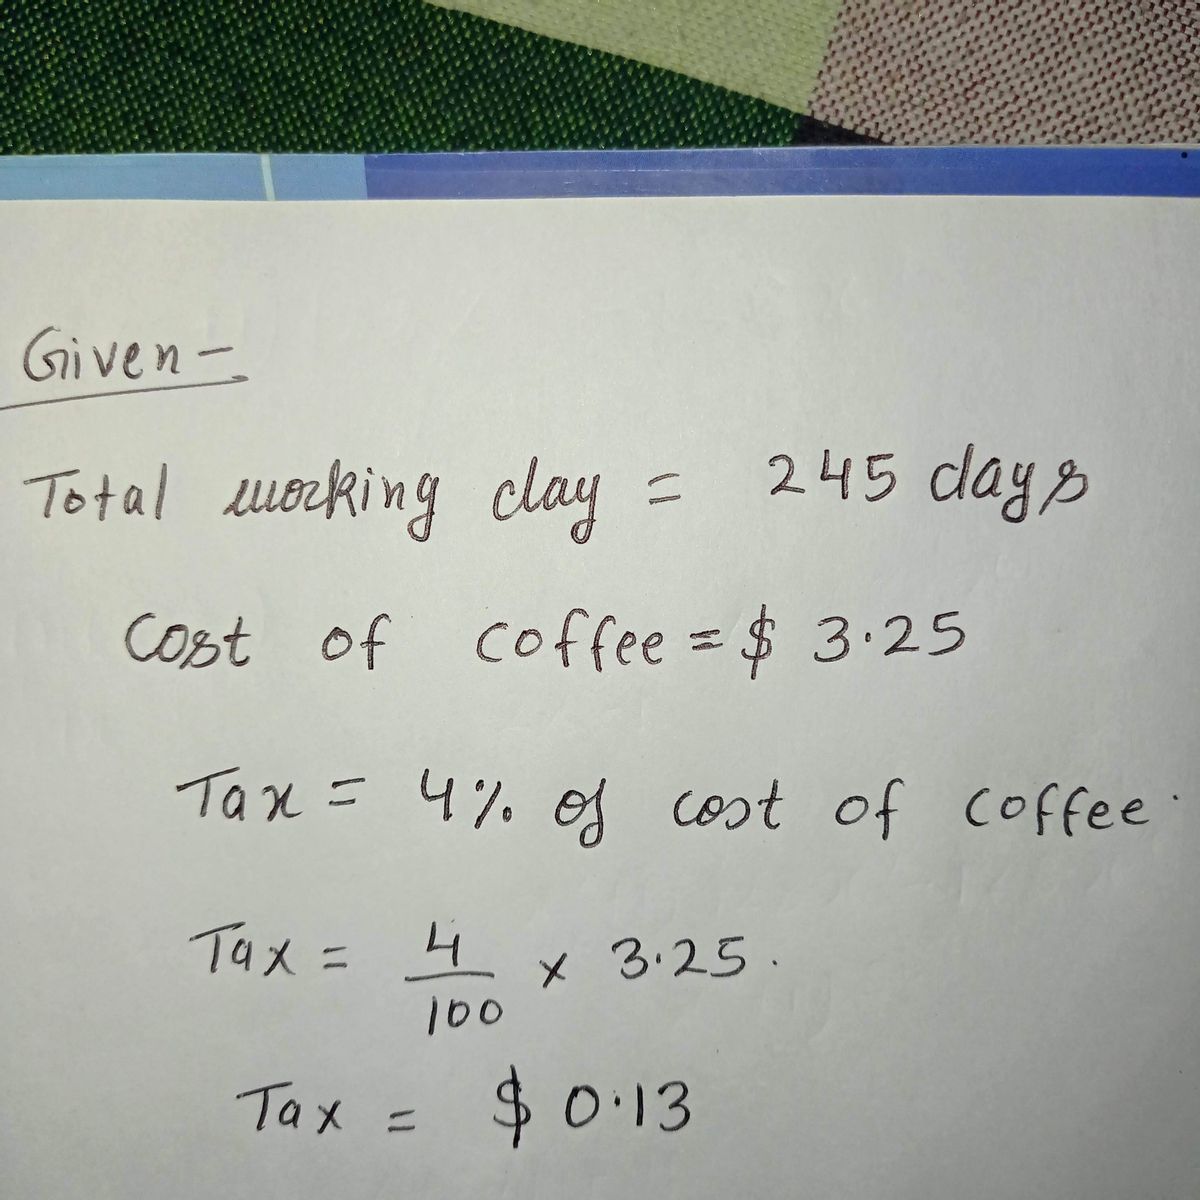 Given -
Total working day = 245 days
Cost of coffee = $ 3.25
Tax = 4% of cost of coffee.
Tax = 4/100 x 3.25.
Tax = $ 0.13